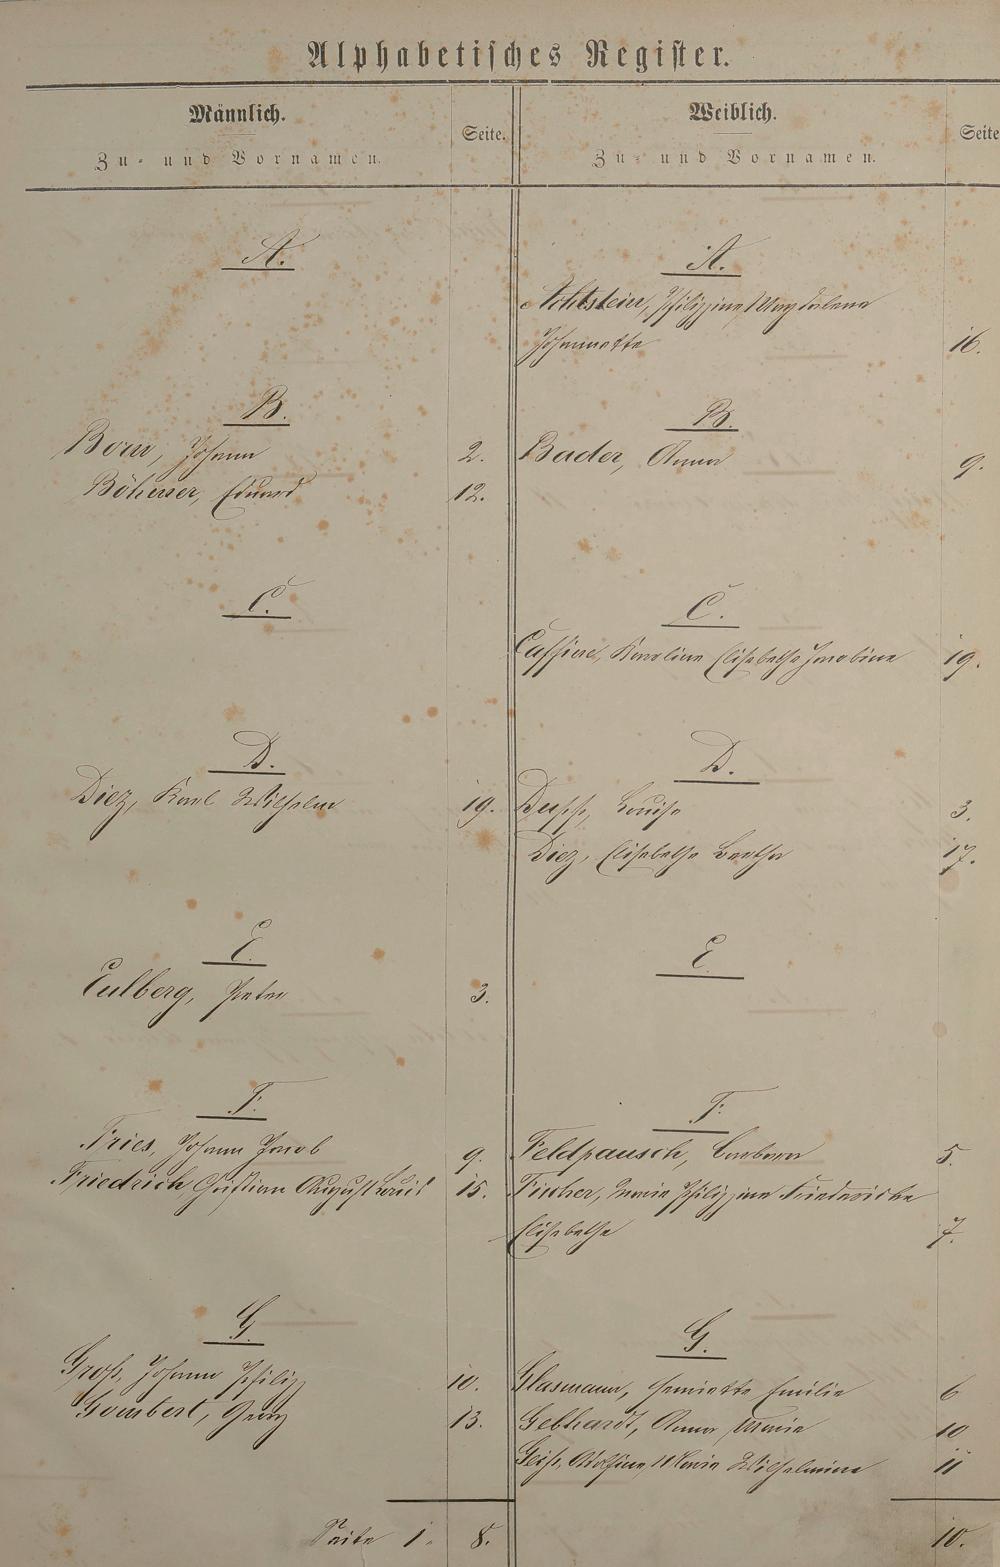 Alphabetisches Register.
Männlich.
Seite.
Zu- und Vornamen.
A.
B.
Born, Johann 2.
Böhmer, Eduard 12.
C.
D.
Diez, Karl Wilhelm 19.
E.
Eulberg, Peter 3.
F.
Fries, Johann Jacob 9.
Friedrich Christian August Louis 15.
G.
Groß, Johann Philipp 10.
Gombert, Georg 13.
Seite 1. 8.
Weiblich.
Seite
Zu- und Vornamen.
A.
Achtstein, Philippine Magdalena
Johannette 16.
B.
Bader, Anna 9.
C.
Karoline Elisabetha Jacobine 19.
D.
Louise 3.
Diez, Elisabetha Bertha 17.
E.
F.
Feldpausch, Barbara 5.
Fischer, Marie Philippine Friedericke
Elisabetha 7.
G.
Glasmann, Henriette Emilie 6
Gebhardt, Anna Maria 10
Geiß, Marie Wilhelmine 11
10.